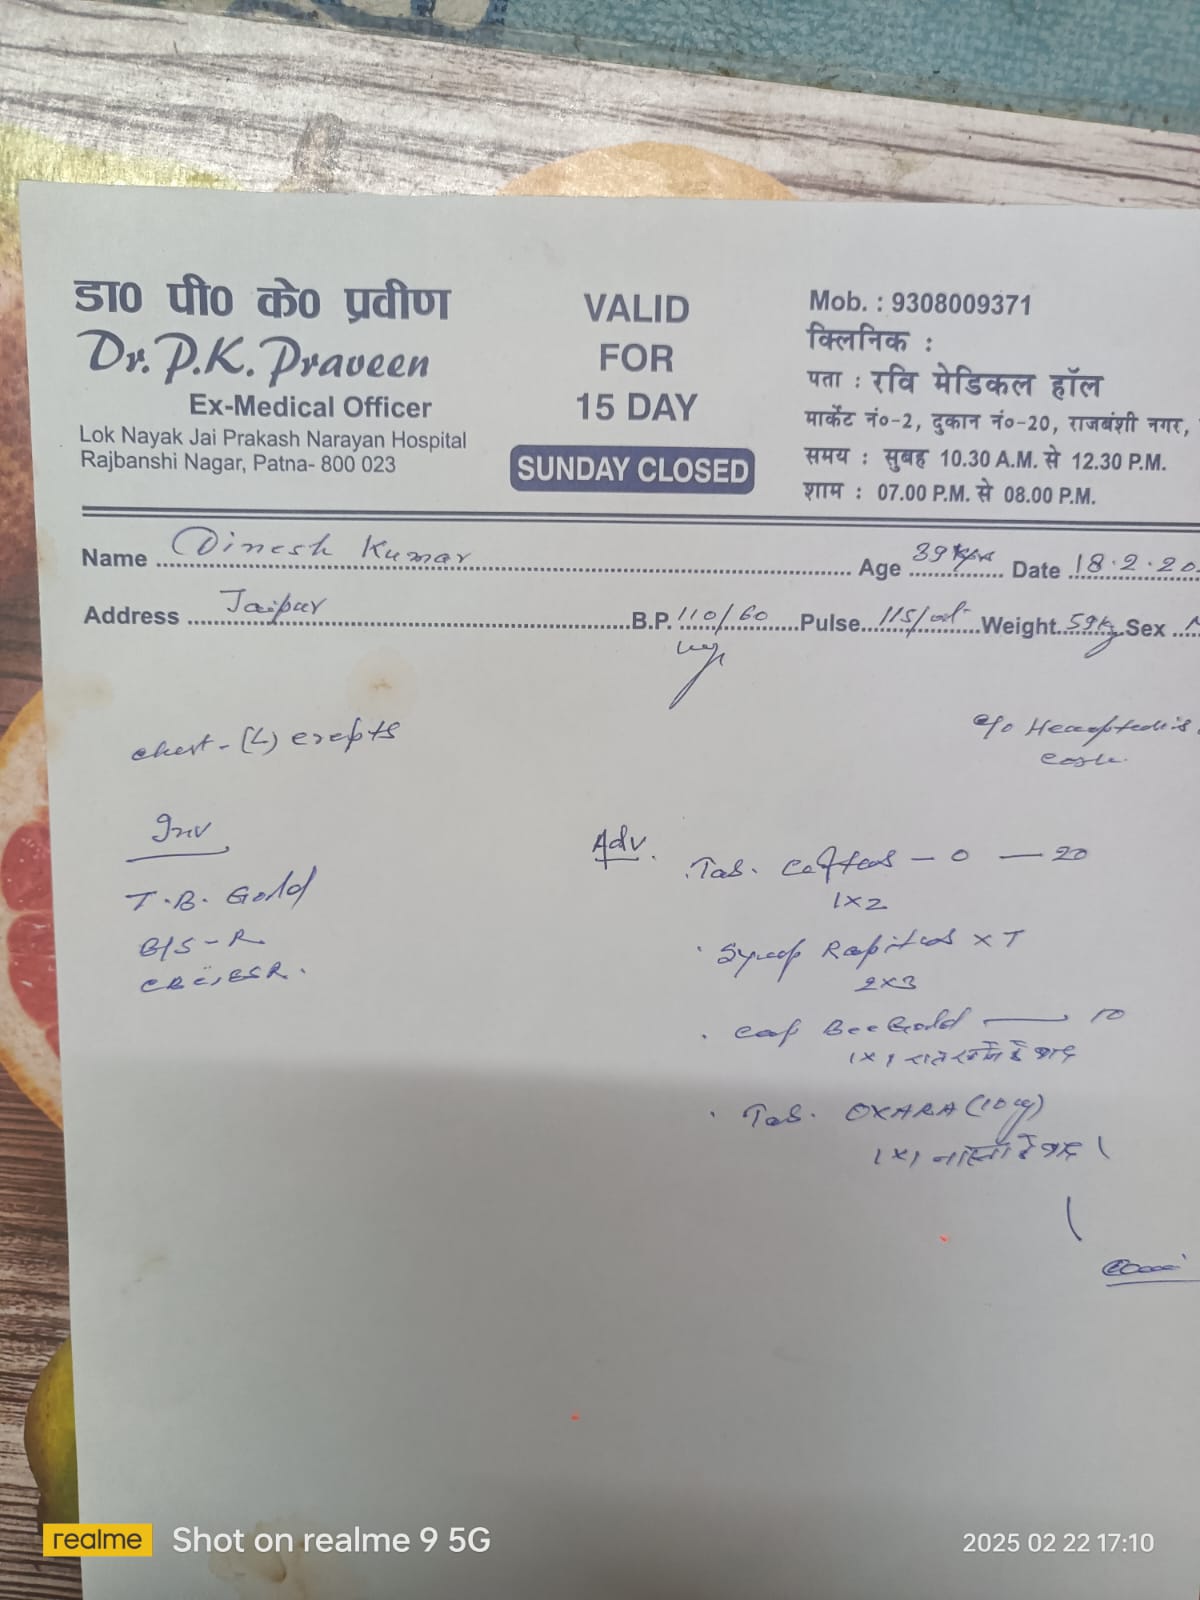 डा० पी० के० प्रवीण
Dr. P.K. Praveen
Ex-Medical Officer
Lok Nayak Jai Prakash Narayan Hospital
Rajbanshi Nagar, Patna- 800 023
VALID
FOR
15 DAY
SUNDAY CLOSED
Mob. : 9308009371
क्लिनिक :
पता : रवि मेडिकल हॉल
मार्केट नं०-2, दुकान नं०-20, राजबंशी नगर,
समय : सुबह 10.30 A.M. से 12.30 P.M.
शाम : 07.00 P.M. से 08.00 P.M.
Name Dinesh Kumar Age 39 Date 18.2.20
Address Jaipur B.P. 110/60 Pulse 115/ Weight 59kg Sex M
chest - (L)
c/o
Inv
T.B. Gold
B/S - R
ESR.
Adv.
Tab. - 0 — 20
1x2
Syrup x T
2x3
Cap Bee Gold — 10
1x1
Tab. OXARA (10
1x1
realme Shot on realme 9 5G
2025 02 22 17:10